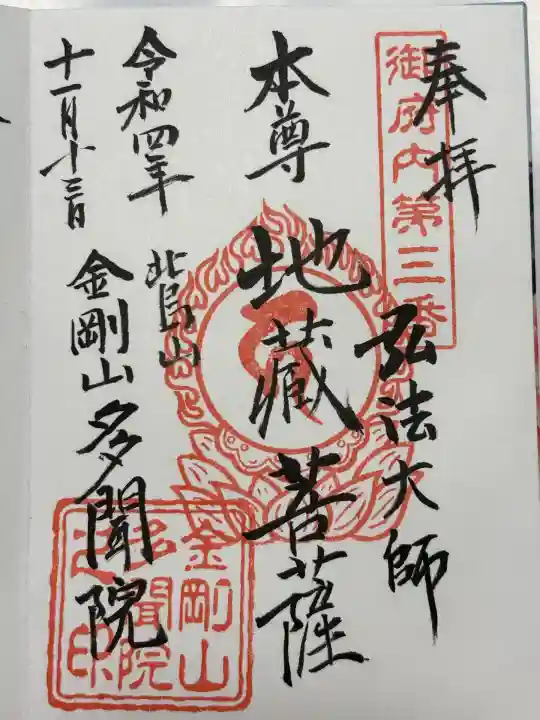 奉拝
御府内第三番
弘法大師
本尊
地蔵菩薩
令和四年
十一月十三日
北烏山
金剛山多聞院
金剛山
多聞院
之印